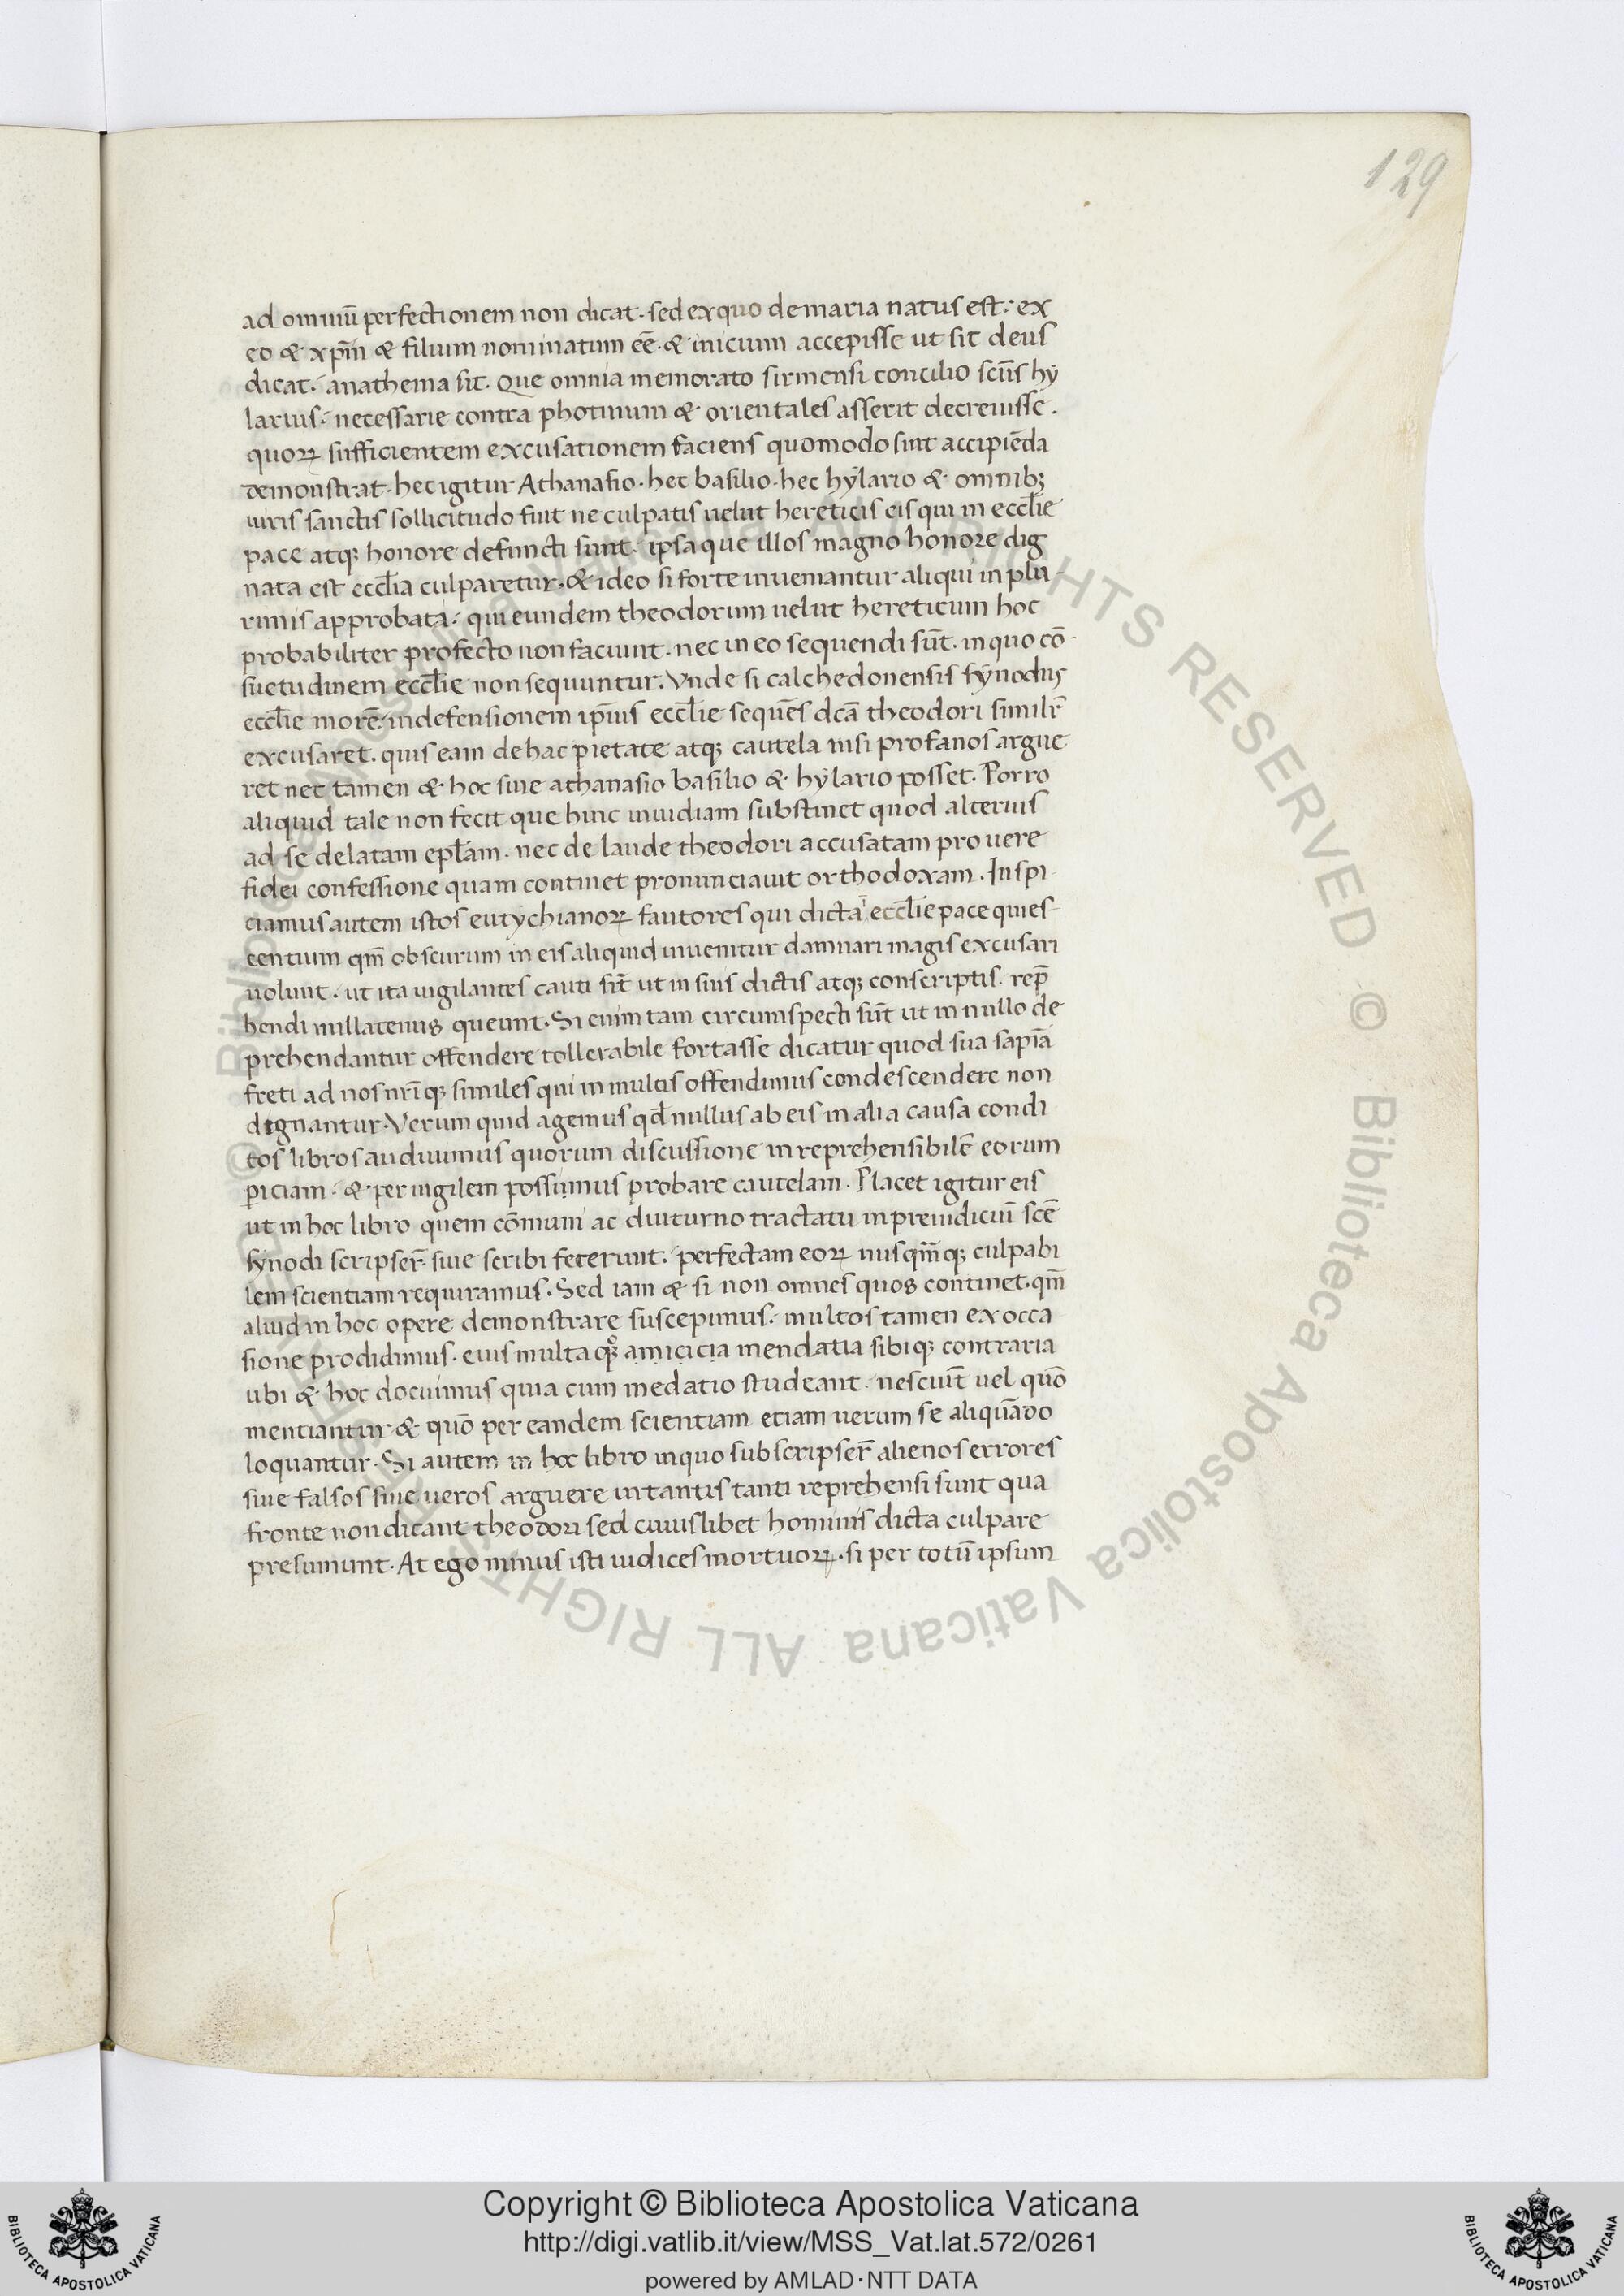 129
ad omniū perfectionem non dicat. sed ex quo de maria natus est: ex
eo & xp̄m & filium nominatum eē. & inicium accepisse ut sit deus
dicat. anathema sit. Que omnia memorato sirmensi concilio scūs hy
larius. necessarie contra photinum & orientales asserit decreuisse.
quoꝝ sufficientem excusationem faciens quomodo sint accipiēda
demonstrat. hec igitur Athanasio. hec basilio. hec hylario & omnibꝫ
uiris sanctis sollicitudo fuit ne culpatis uelut hereticis eis qui in eccl̄ie
pace atqꝫ honore defuncti sunt. ipsa que illos magno honore dig
nata est eccl̄ia culparetur. & ideo si forte inueniantur aliqui in plu
rimis approbati. qui eundem theodorum uelut hereticum hoc
probabiliter profecto non faciunt. nec in eo sequendi sūt. in quo cō
suetudinem eccl̄ie non sequuntur. Vnde si calchedonensis synodus
eccl̄ie morē. in defensionem ip̄ius eccl̄ie sequēs dcā theodori similr̄
excusaret. quis eam de hac pietate atqꝫ cautela nisi profanos argue
ret nec tamen & hoc siue athanasio basilio & hylario posset. Porro
aliquid tale non fecit que hinc inuidiam substinet quod alterius
ad se delatam epl̄am. nec de laude theodori accusatam pro uere
fidei confessione quam continet pronunciauit orthodoxam. Inspi
ciamus autem istos eutychianoꝝ fautores qui dicta ī eccl̄ie pace quies
centium qm̄ obscurum in eis aliquid inuenitur damnari magis excusari
uolunt. ut ita uigilantes cauti sīt ut in suis dictis atqꝫ conscriptis. rep̄
hendi nullatenus queunt. Si enim tam circumspecti sūt ut in nullo de
prehendantur offendere tollerabile fortasse dicatur quod sua sapīa
freti ad nos nr̄iqꝫ similes qui in multis offendimus condescendere non
dignantur. Verum quid agemus qd̄ nullus ab eis in alia causa condi
tos libros audiuimus quorum discussione inreprehensibilē eorum
piciam. & peruigilem possumus probare cautelam. Placet igitur eis
ut in hoc libro quem cōmuni ac diuturno tractatu in preiudiciū scē
synodi scripser̄ siue scribi fecerunt. perfectam eoꝝ nusqm̄qꝫ culpabi
lem scientiam requiramus. Sed iam & si non omnes quos continet. qm̄
aliud in hoc opere demonstrare suscepimus. multos tamen ex occa
sione prodidimus. eius multa amicicia mendatia sibiqꝫ contraria
ubi & hoc docuimus quia cum medatio studeant. nesciūt uel quō
mentiantur & quō per eandem scientiam etiam uerum se aliquādo
loquantur. Si autem in hoc libro in quo subscripser̄ alienos errores
siue falsos siue ueros arguere in tantis tanti reprehensi sunt qua
fronte non dicant theodori sed cuiuslibet hominis dicta culpare
presumunt. At ego minus isti iudices mortuoꝝ. si per totū ipsum
© Biblioteca Apostolica Vaticana ALL RIGHTS RESERVED
Copyright © Biblioteca Apostolica Vaticana
http://digi.vatlib.it/view/MSS_Vat.lat.572/0261
powered by AMLAD·NTT DATA
BIBLIOTECA APOSTOLICA VATICANA
BIBLIOTECA APOSTOLICA VATICANA